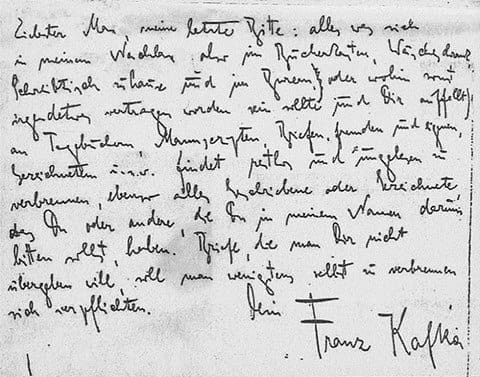 Liebster Max, meine letzte Bitte: alles was sich
in meinem Nachlass (also im Bücherkasten, Wäscheschrank
Schreibtisch zuhause und im Bureau, oder wohin sonst
irgendetwas vertragen worden sein sollte und Dir auffällt)
an Tagebüchern, Manuscripten, Briefen, fremden und eignen,
Gezeichnetem u.s.w. findet restlos und ungelesen zu
verbrennen, ebenso alles Geschriebene oder Gezeichnete,
das Du oder andre, die Du in meinem Namen darum
bitten sollst, haben. Briefe, die man Dir nicht
übergeben will, soll man wenigstens selbst zu verbrennen
sich verpflichten.
Dein
Franz Kafka